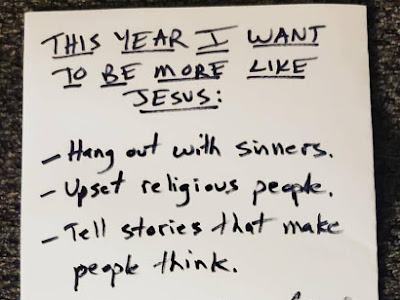 THIS YEAR I WANT
TO BE MORE LIKE
JESUS:
- Hang out with sinners.
- Upset religious people.
- Tell stories that make
people think.